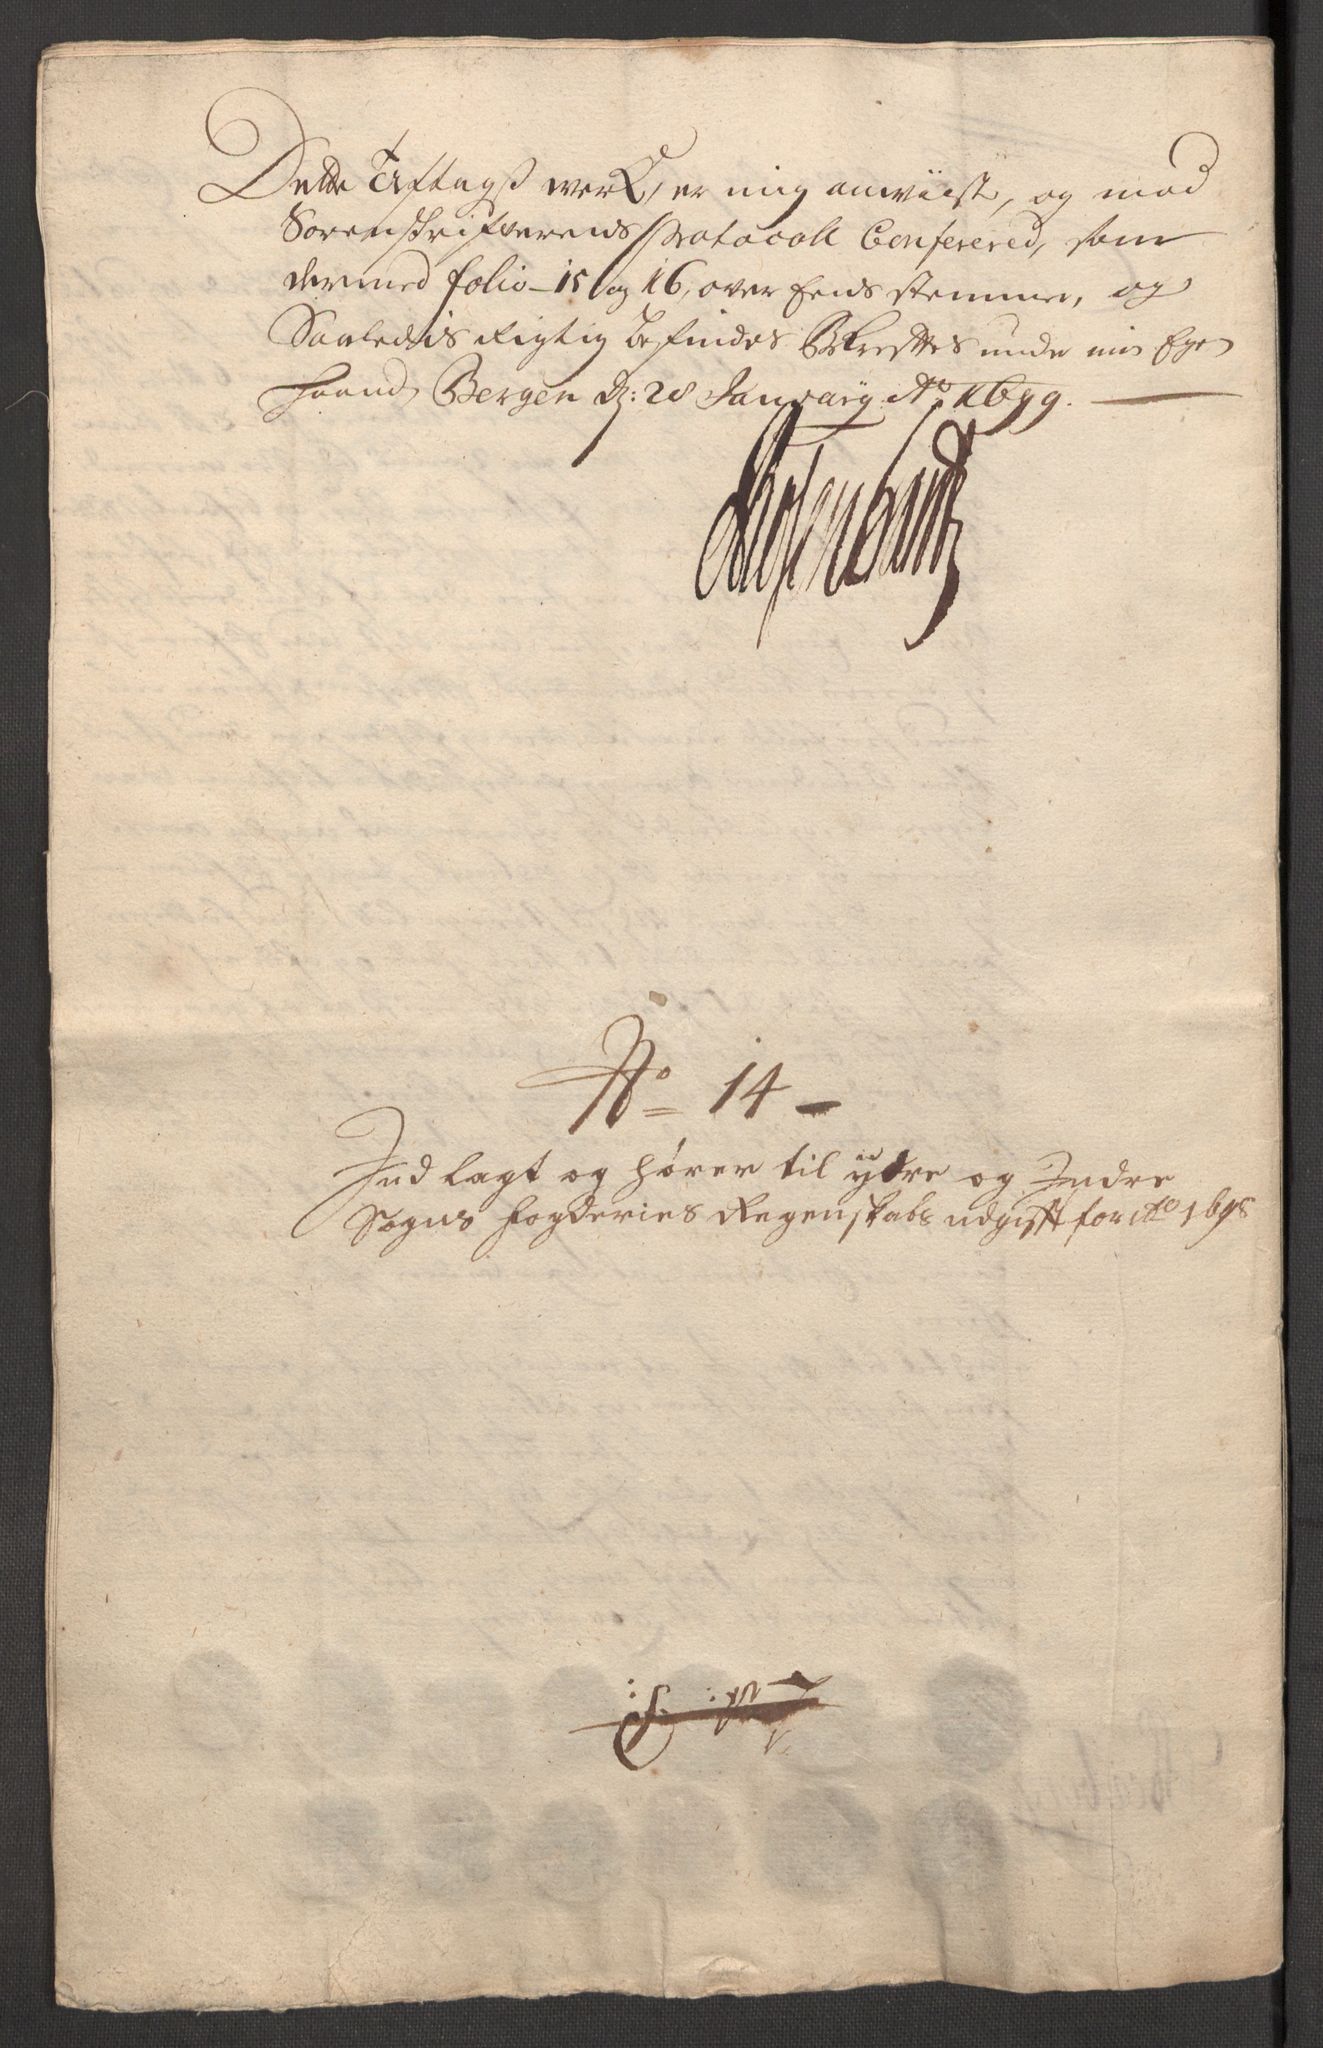 Dette Aftagsz werk, er mig anwiist, og mod
Sorenschrifverens protocoll Conferered, som
dermed folio 15 og 16, over Eens stemmer, og
Saaledis Rigtig befindes Bekreftes under min Egen
haand, Bergen d: 28 January Ao 1699.
No 14
Ind lagt og hører til ydre og Indre
Sogns fogderies Regenskabs udgifft for Ao 1698